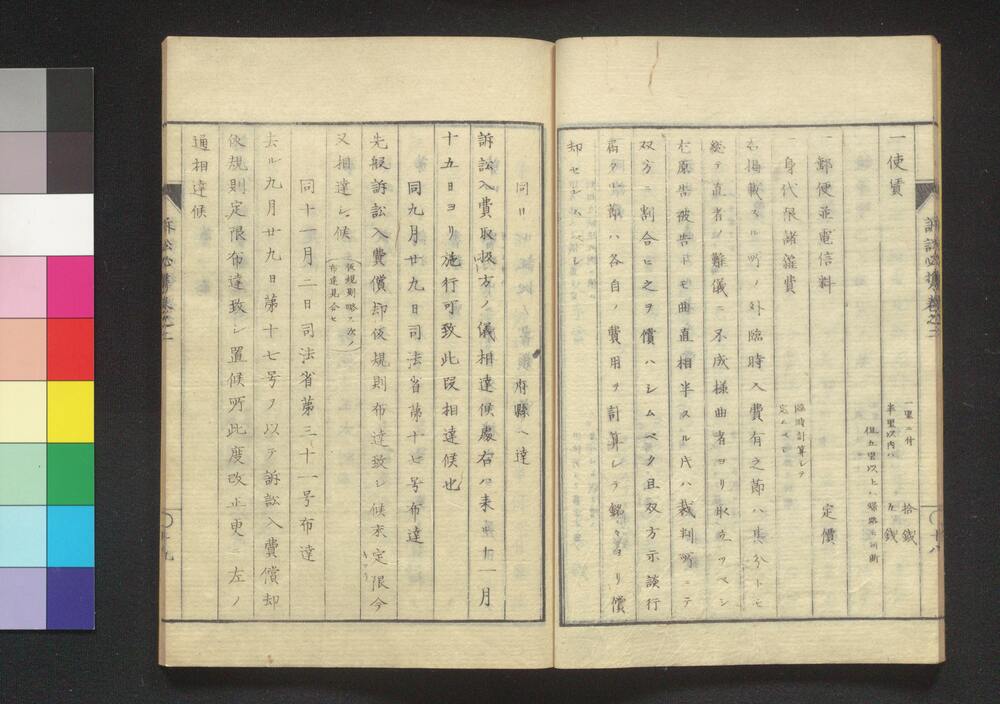 訴訟必携巻之二
十八
一使賃
一里ニ付 拾錢
半里以内ハ 五錢
但五里以上ハ
一郵便並電信料
定價
一身代限諸雜費
臨時計算シテ
定ムベシ
右掲載スル所ノ外臨時入費有之節ハ其分トモ
總テ直者ノ難儀ニ不成様曲者ヨリ取立ツベシ
尤原告被告トモ曲直相半スル片ハ裁判所ニテ
双方ニ割合ヒ之ヲ償ハシムベク且双方示談行
届タル節ハ各自ノ費用ヲ計算シテ銘々ヨリ償
却セシムベシ
同日
府縣ヘ達
訴訟入費取扱方ノ儀相達候處右ハ来ル十一月
十五日ヨリ施行可致此段相達候也
同九月廿九日司法省第十七号布達
先般訴訟入費償却仮規則布達致シ候末定限今
又相達シ候
仮規則略ス次ノ
布達見合セ
同十一月二日司法省第三十一号布達
去ル九月廿九日第十七号ヲ以テ訴訟入費償却
仮規則定限布達致シ置候所此度改正更ニ左ノ
通相達候
訴訟必携巻之二
十九